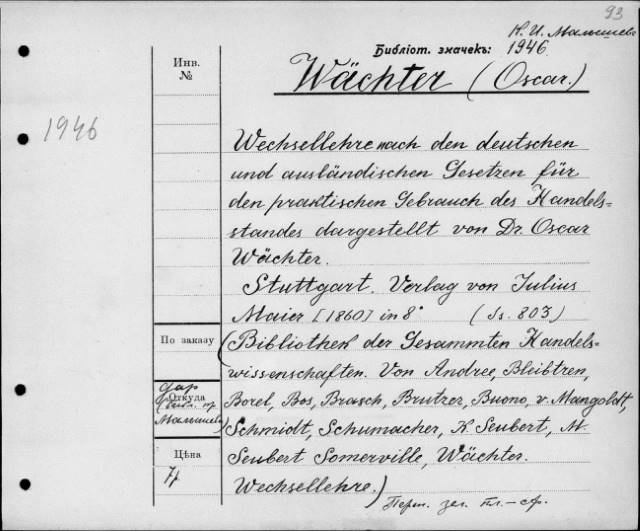 93
Н. И. Малышев
Библіот. значекъ: 1946
Инв. №
Wächter (Oscar.)
1946
Wechsellehre nach den deutschen
und ausländischen Gesetzen für
den praktischen Gebrauch des Handels=
standes dargestellt von Dr. Oscar
Wächter.
Stuttgart. Verlag von Julius
Maier [1860] in 8° (Ss. 803)
По заказу
(Bibliothek der Gesammten Handels=
wissenschaften. Von Andree, Bleibtren,
дар
Откуда
Малышева
Borel, Bos, Brasch, Brutzer, Buono, v. Mangoldt,
Schmidt, Schumacher, K Seubert, M
Цѣна
Seubert Somerville, Wächter.
Wechsellehre.)
Перт. зел. тл.-ср.